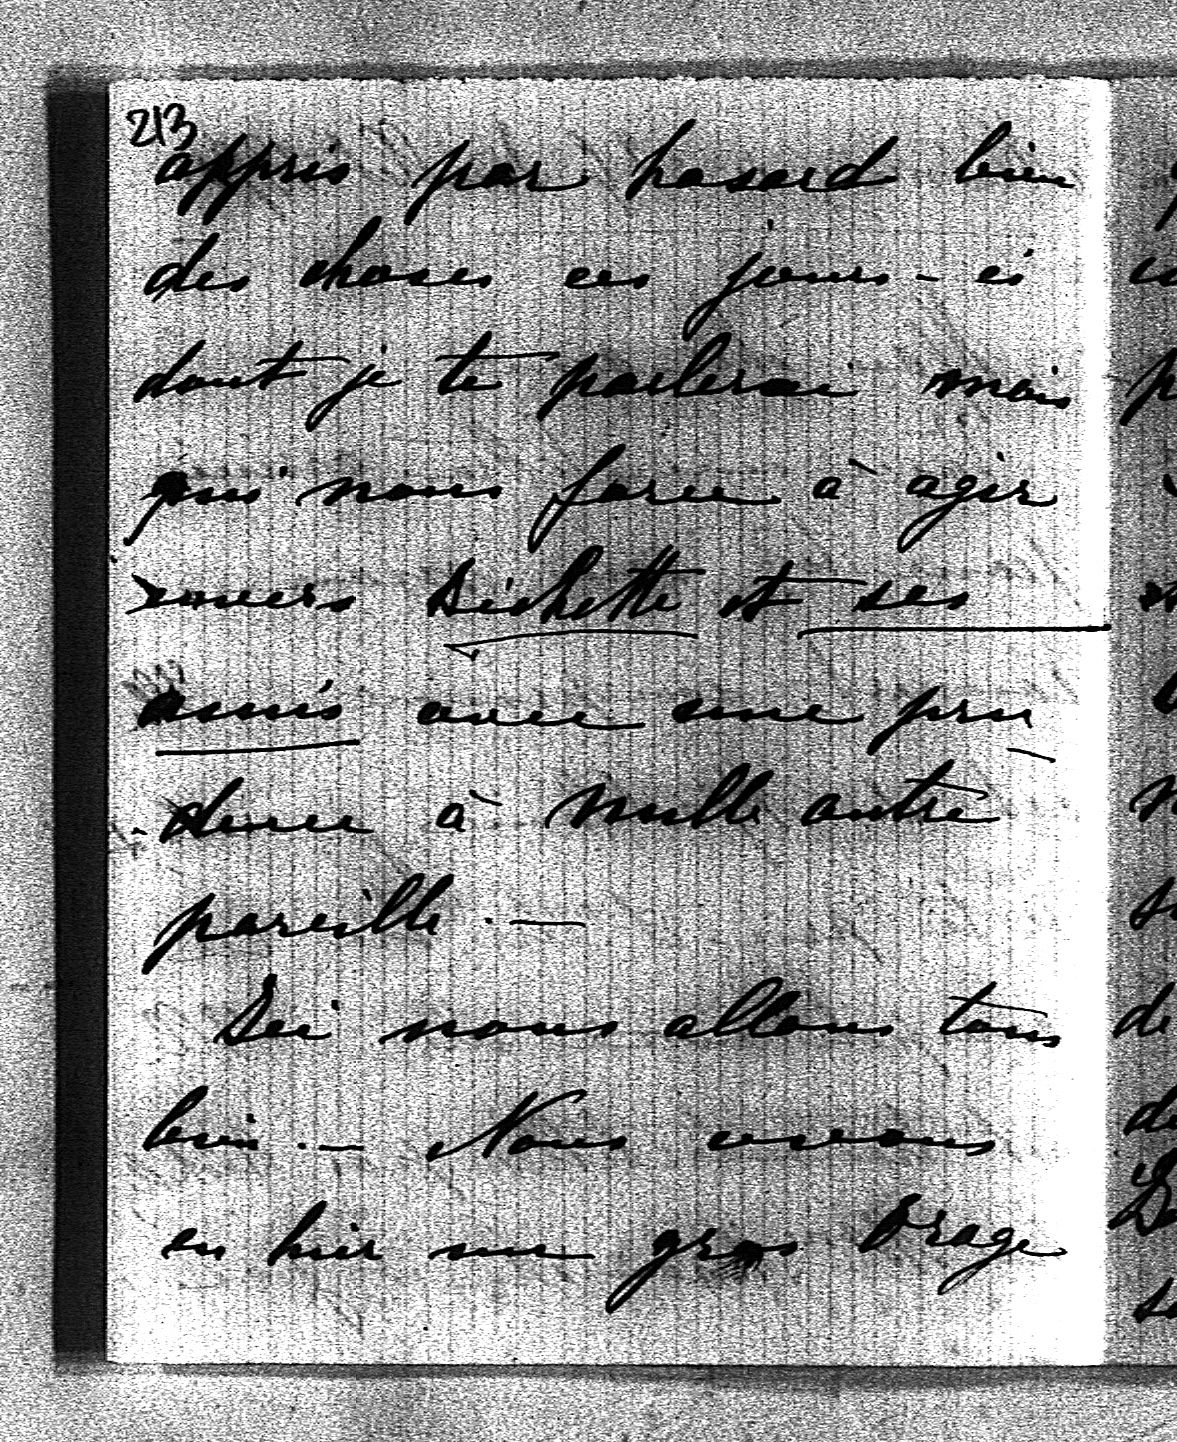 213
appris par hasard bien
des choses ces jours-ci
dont je te parlerai mais
qui nous force à agir
envers Bichette et ses
amis avec une pru
dence à nulle autre
pareille. —
Ici nous allons tous
bien. — Nous avons
eu hier un gros Orage